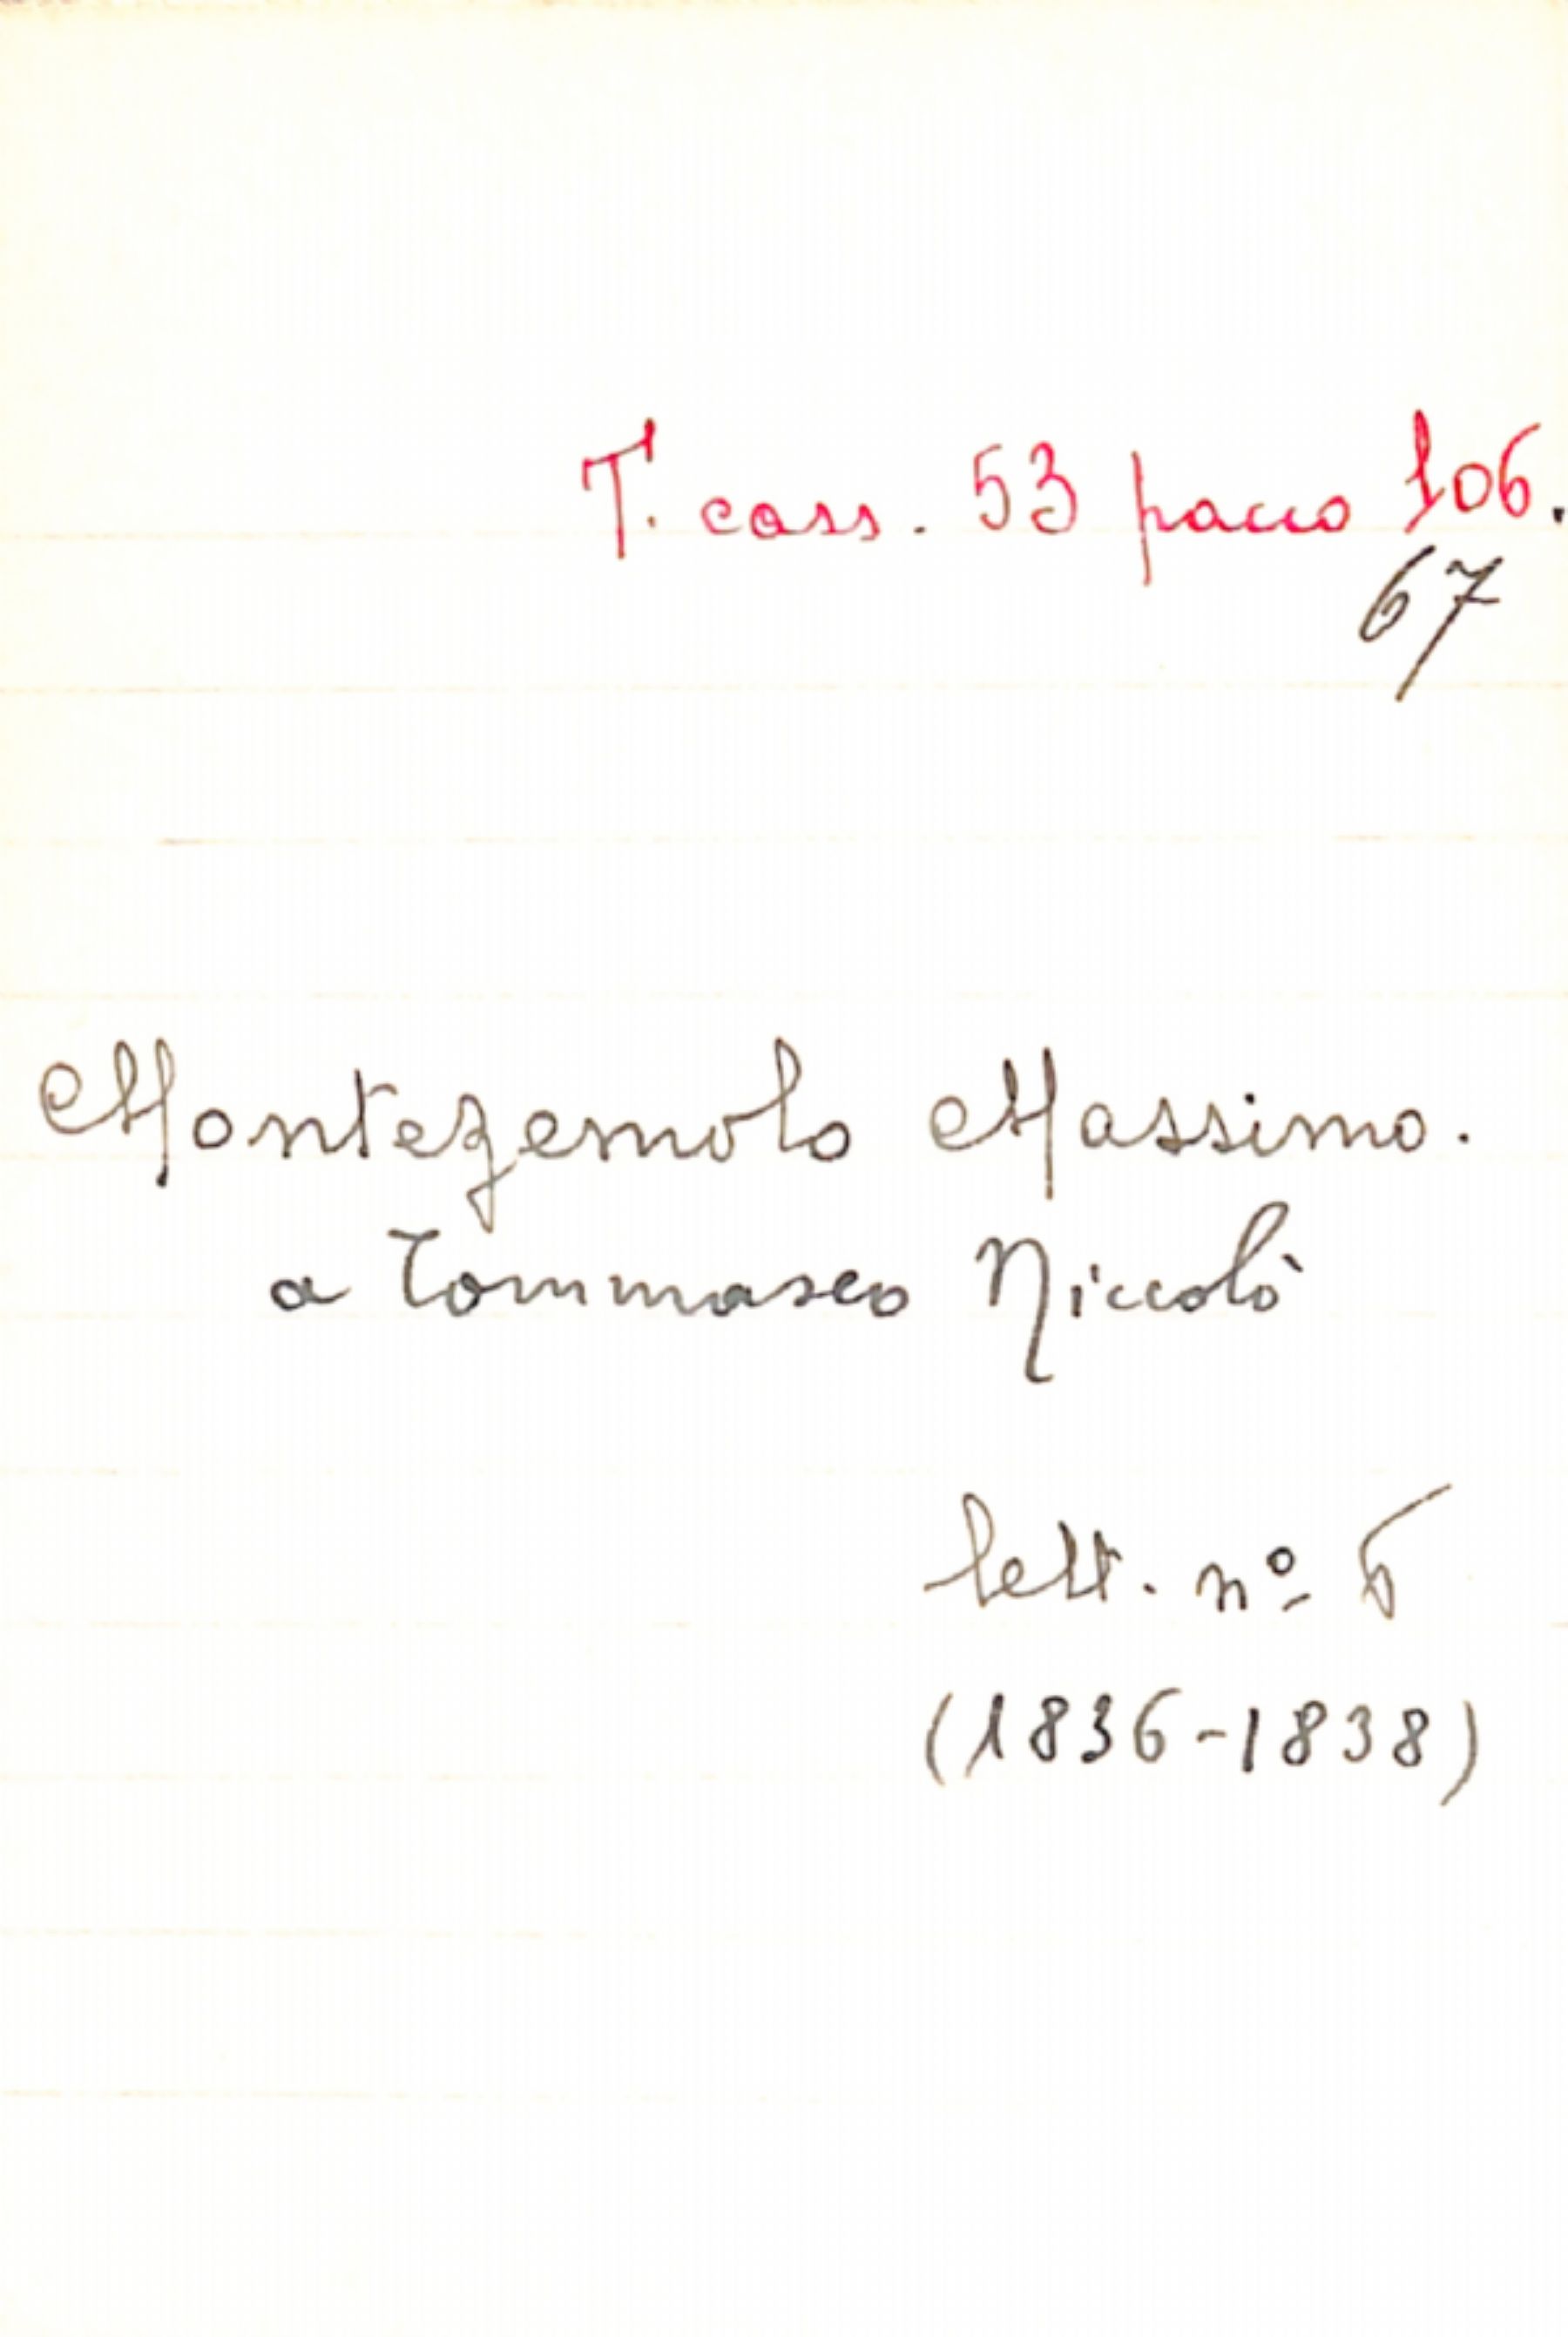 T. cass. 53 pacco 106.
67
Montezemolo Massimo.
a Tommaseo Niccolò
lett. nº 6
(1836-1838)